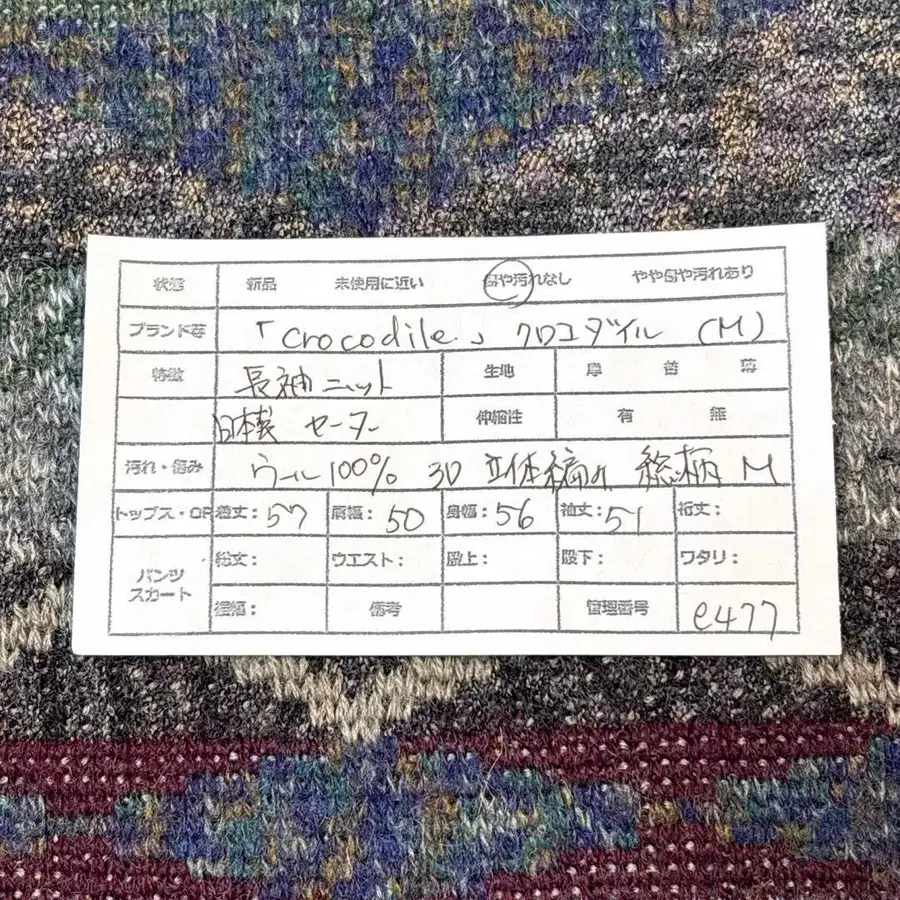 状態 新品 未使用に近い 傷や汚れなし やや傷や汚れあり
ブランド等 「crocodile.」 クロコダイル (M)
特徴 長袖ニット 生地 厚 普 薄
日本製 セーター 伸縮性 有 無
汚れ・傷み ウール100% 3D 立体編み 総柄 M
トップス・OP 着丈: 57 肩幅: 50 身幅: 56 袖丈: 51 裄丈:
パンツ スカート 総丈: ウエスト: 股上: 股下: ワタリ:
裾幅: 備考 管理番号 e477